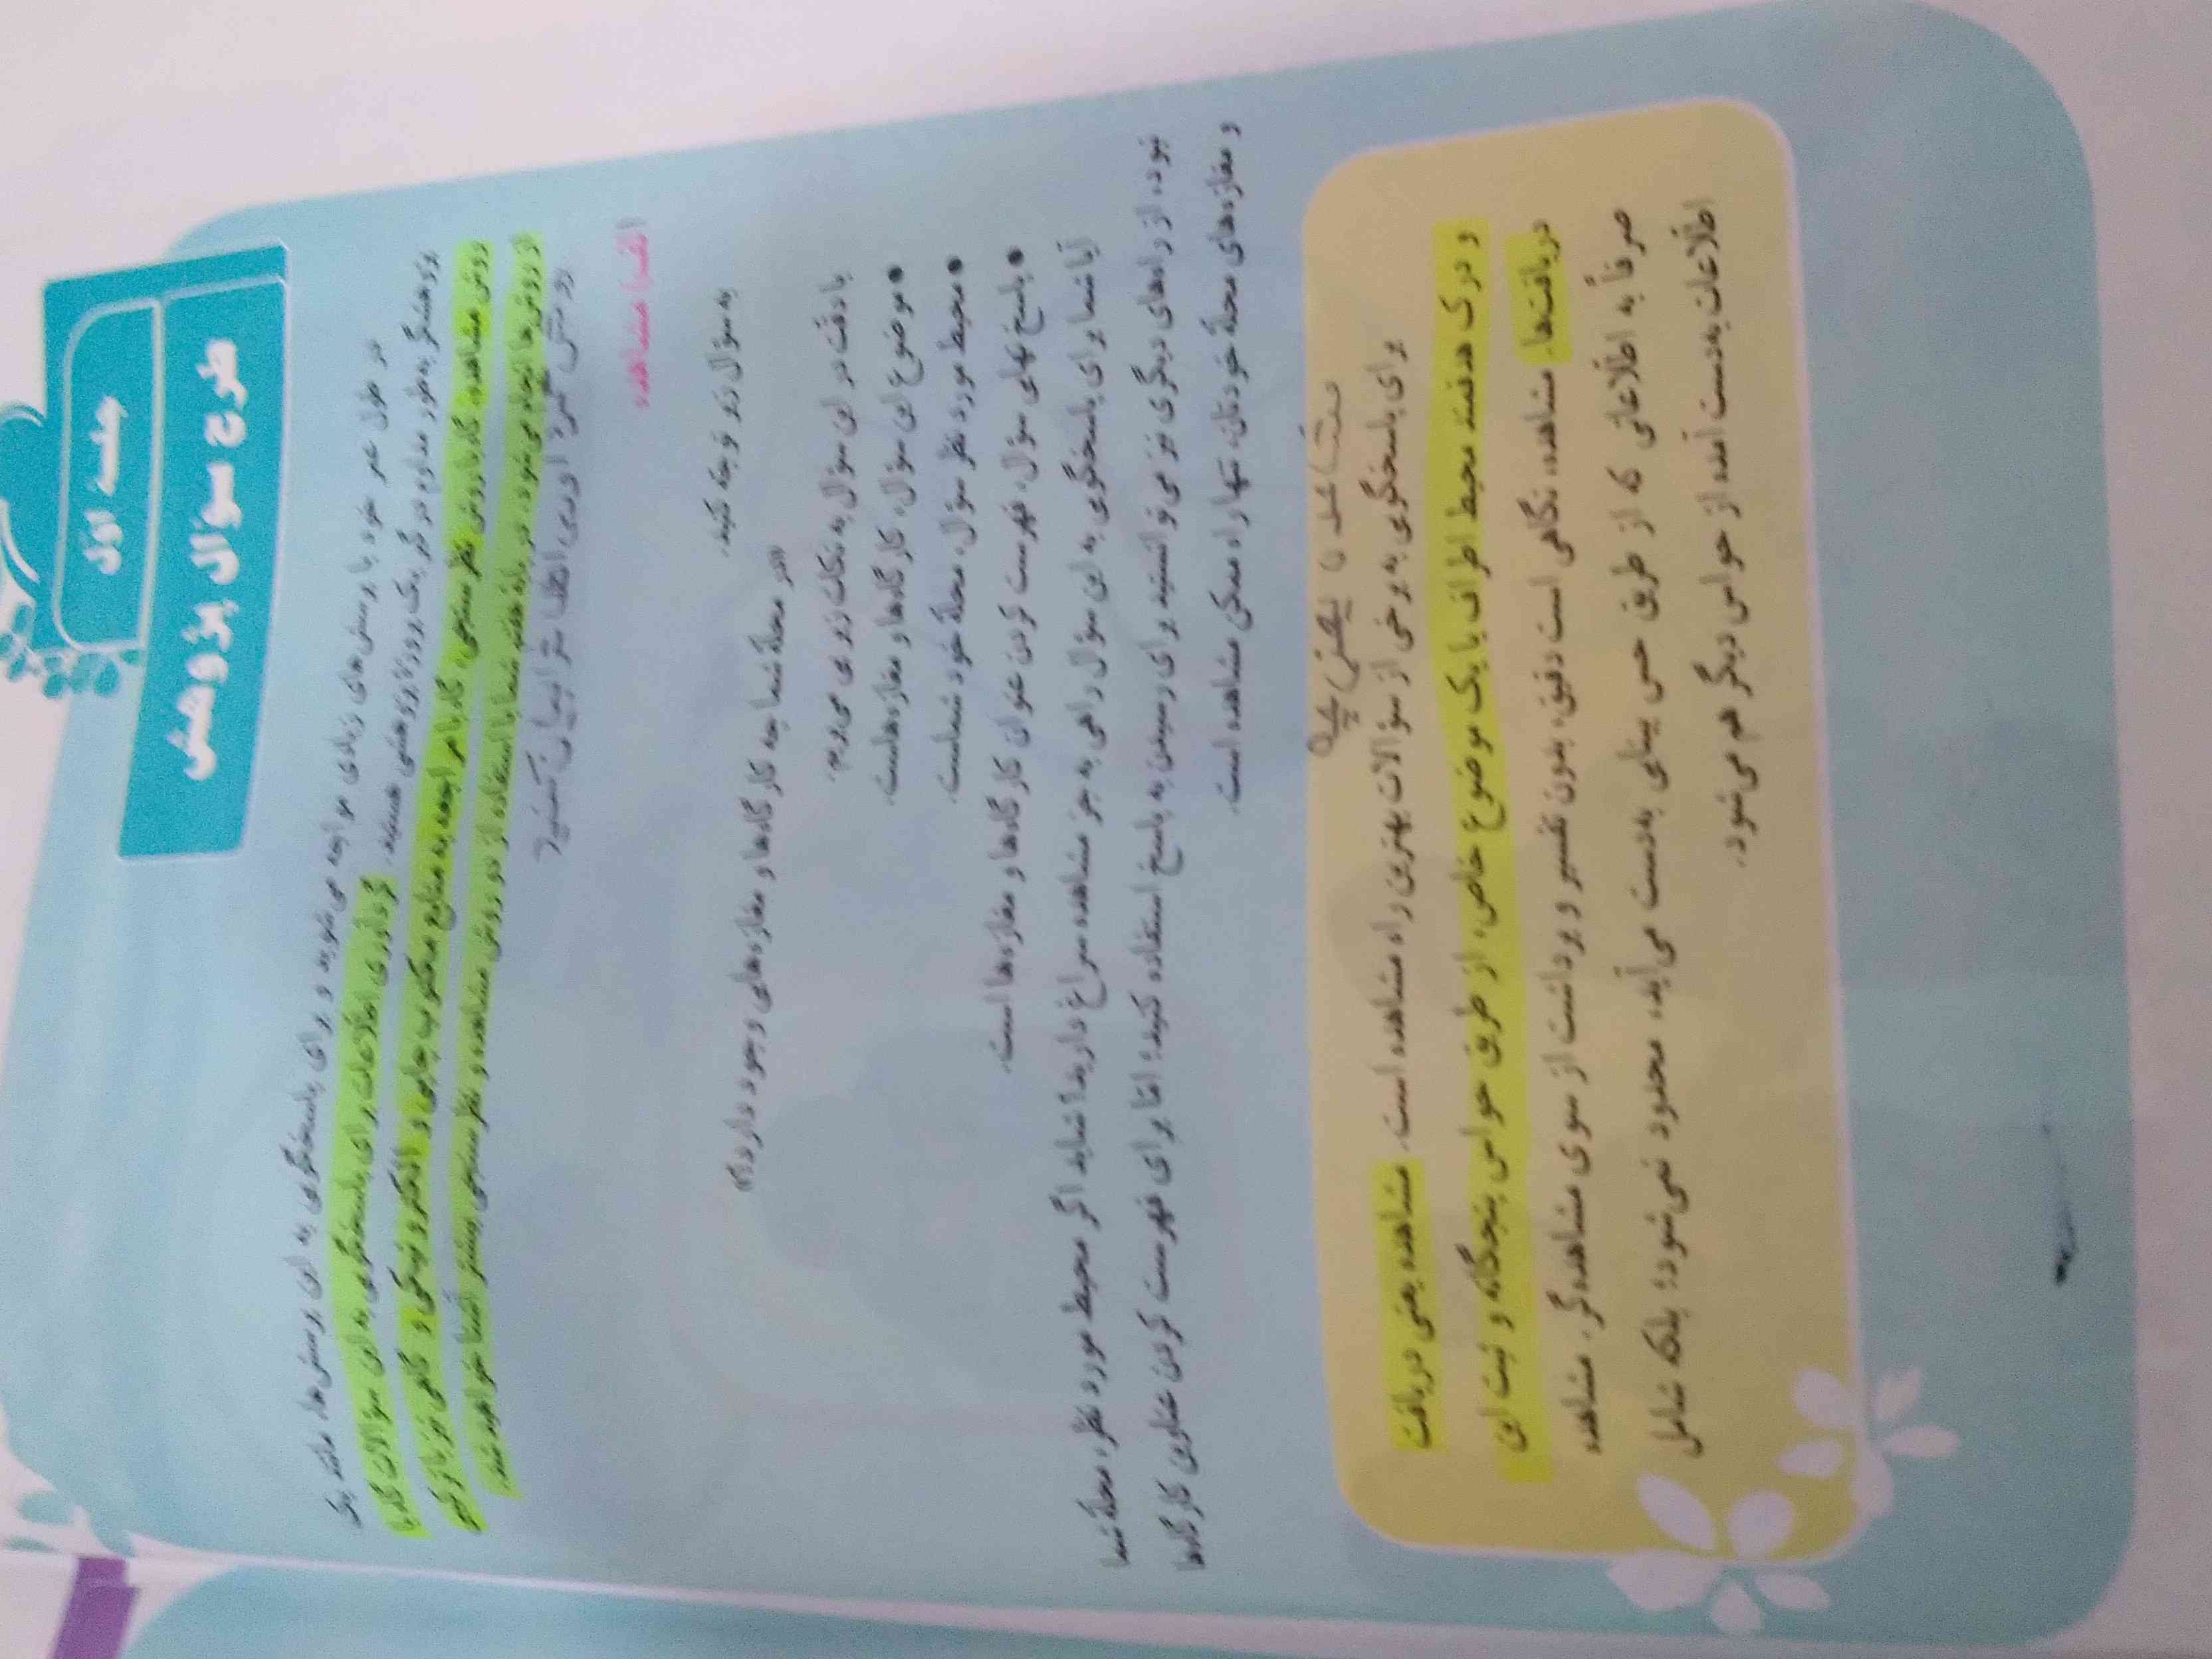 جلسه اوّل
طرح سؤال پژوهشی
در طول عمر خود با پرسش‌های زیادی مواجه می‌شوید و برای پاسخگویی به این پرسش‌ها، مانند یک
پژوهشگر به‌طور مداوم درگیر یک پروژهٔ پژوهشی هستید. گردآوری اطلاعات برای پاسخگویی به این سؤالات گاه با
روش مشاهده، گاه با روش نظرسنجی، گاه با مراجعه به منابع مکتوب چاپی و الکترونیکی و گاهی نیز با ترکیبی
از روش‌ها انجام می‌شود. در یازده هفته، شما با استفاده از دو روش مشاهده و نظرسنجی بیشتر آشنا خواهید شد.
روش آوری اطلاعات را بیان کنید؟
الف) مشاهده
به سؤال زیر توجه کنید.
«در محلّهٔ شما چه کارگاه‌ها و مغازه‌هایی وجود دارد؟»
با دقت در این سؤال به نکات زیر پی می‌بریم:
● موضوع این سؤال، کارگاه‌ها و مغازه‌هاست.
● محیط مورد نظر سؤال، محلّهٔ خود شماست.
● پاسخ نهایی سؤال، فهرست کردن عنوان کارگاه‌ها و مغازه‌ها است.
آیا شما برای پاسخگویی به این سؤال راهی به جز مشاهده سراغ دارید؟ شاید اگر محیط مورد نظر، محلّهٔ شما
نبود، از راه‌های دیگری نیز می‌توانستید برای رسیدن به پاسخ استفاده کنید؛ امّا برای فهرست کردن عناوین کارگاه‌ها
و مغازه‌های محلّهٔ خودتان، تنها راه ممکن مشاهده است.
مشاهده یعنی چه
برای پاسخگویی به برخی از سؤالات بهترین راه مشاهده است. مشاهده یعنی دریافت
و درک هدفمند محیط اطراف با یک موضوع خاص، از طریق حواس پنجگانه و ثبت این
دریافت‌ها. مشاهده، نگاهی است دقیق، بدون تفسیر و برداشت از سوی مشاهده‌گر. مشاهده
صرفاً به اطّلاعاتی که از طریق حس بینایی به‌دست می‌آید، محدود نمی‌شود؛ بلکه شامل
اطّلاعات به‌دست آمده از حواس دیگر هم می‌شود.